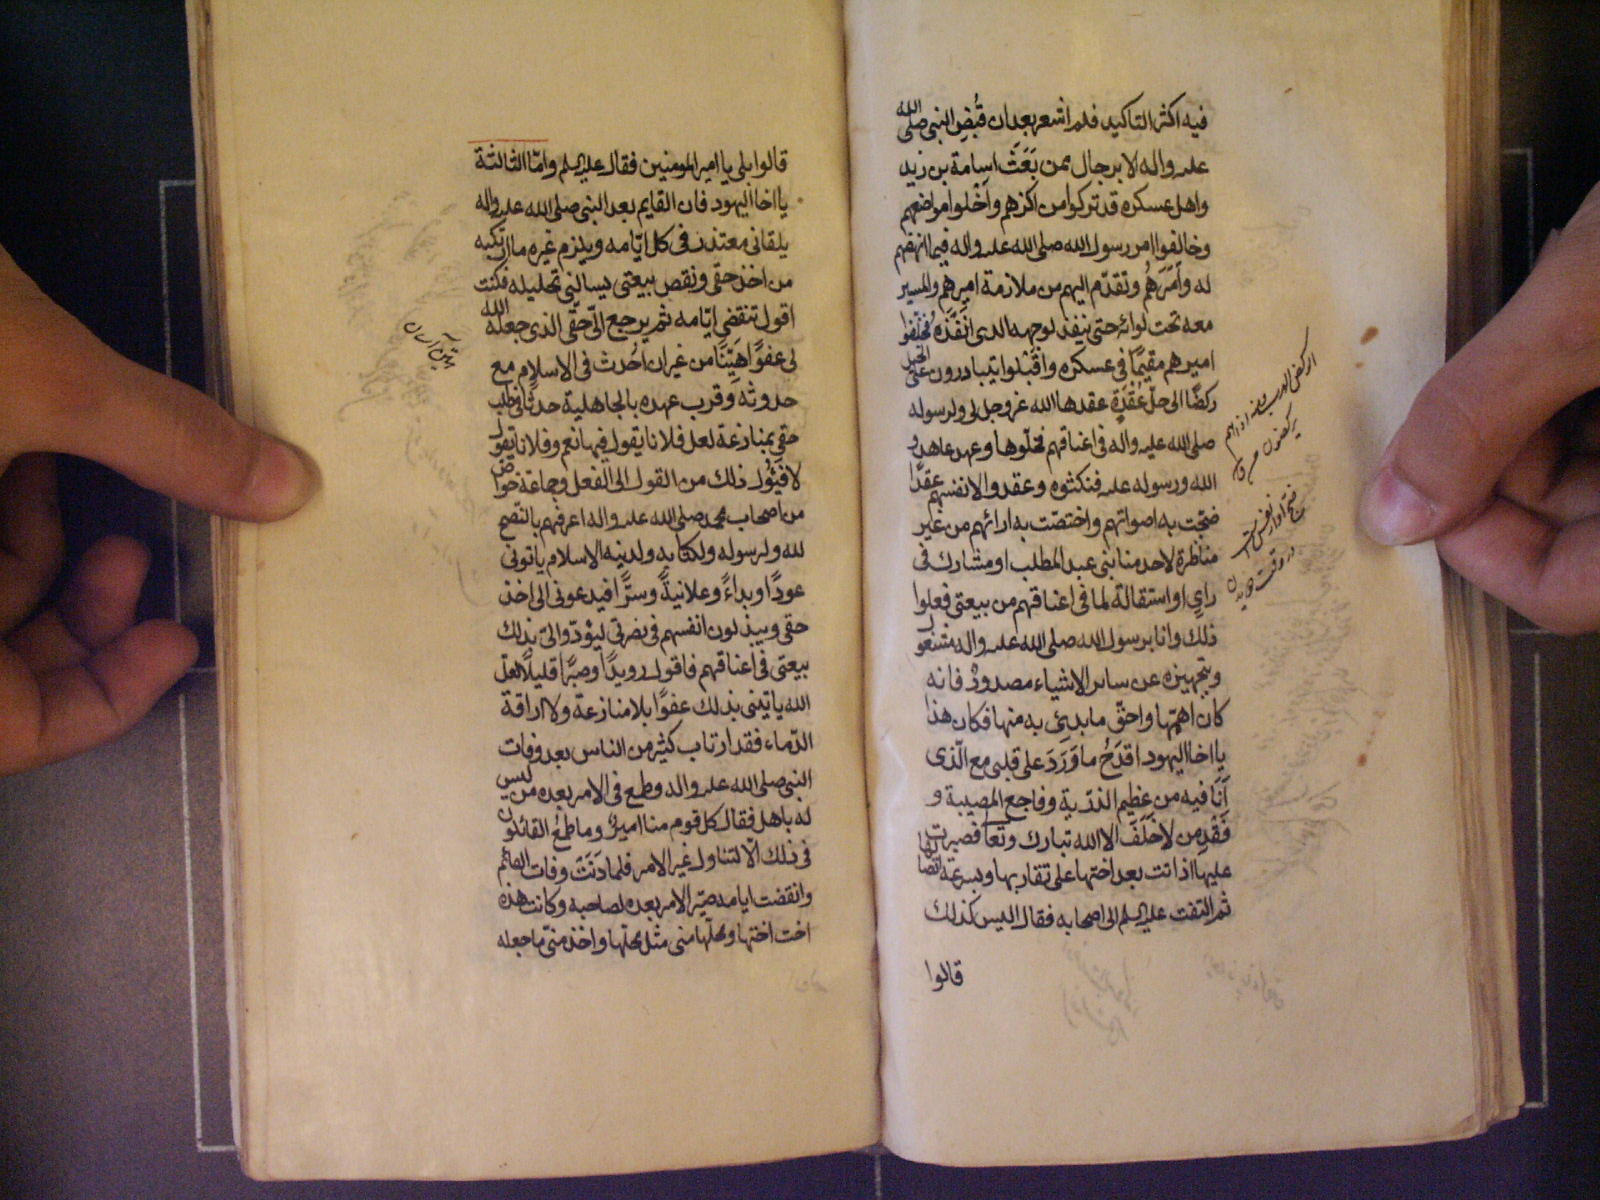 فيه اكثر التاكيد فلم اشعر بعد ان قُبِض النبى صلى الله
عليه واله الا برجال ممن بَعَثَ اسامة بن زيد
واهل عسكره قد تركوا مراكزهم وأخلوا مواضعهم
وخالفوا امر رسول الله صلى الله عليه واله فيما انهضهم
له وأَمَرَهُم وتقدّم اليهم من ملازمة اميرهم والمسير
معه تحت لوائه حتى ينفذ لوجهه الذى انفَذَه فخلّفوا
اميرهم مقيمًا فى عسكره واقبلوا يتبادرون على الخيل
ركضًا الى حلّ عُقدَةٍ عقدها الله عز وجل لى ولرسوله
صلى الله عليه واله فى اعناقهم فحلّوها وعهد عاهدوا
الله ورسوله عليه فنكثوه وعقدوا لانفسهم عقدًا
ضجّت به اصواتهم واختصّت به ارائهم من غير
مناظرة لاحد منا بنى عبد المطلب او مشارك فى
راىٍ او استقالة لما فى اعناقهم من بيعتى فعلوا
ذلك وانا برسول الله صلى الله عليه واله مشغول
وبتجهيزه عن ساير الاشياء مصدودٌ فانه
كان اهمّها واحقّ ما بدئ به منها فكان هذا
يا اخا اليهود اقدَحُ ما وَرَدَ على قلبى مع الّذى
أنَا فيه من عظيم الرزية وفاجع المصيبة و
فَقْدِ من لا خَلَفَ الا الله تبارك وتعا فصبرت
عليها اذ اتت بعد اختها على تقاربها وسرعة اتصالها
ثم التفت عليه السلم الى اصحابه فقال اليس كذلك
قالوا
قالوا بلى يا امير المومنين فقال عليه السلم وامّا الثالثة
يا اخا اليهود فان القايم بعد النبى صلى الله عليه واله
يلقانى معتذرا فى كل ايّامه ويلزم غيره ما ارتكبه
من اخذ حقى ونقض بيعتى يسالنى تحليله فكنت
اقول تنقضى ايّامه ثم يرجع الىّ حقّى الذى جعله الله
لى عفوًا هَيِّنًا من غير ان احُدث فى الاسلام مع
حدوثه وقرب عهده بالجاهلية حدثا فى طلب
حقى بمنازعة لعل فلانا يقول فيها نعم وفلانا يقول
لا فيؤُل ذلك من القول الى الفعل وجماعة خواص
من اصحاب محمد صلى الله عليه واله اعرفهم بالنصح
لله ولرسوله ولكتابه ولدينه الاسلام ياتونى
عودًا وبداءً وعلانيةً وسرًّا فيدعونى الى اخذ
حقى ويبذلون انفسهم فى نصرتى ليؤدّوا الىّ بذلك
بيعتى فى اعناقهم فاقول رويدًا وصبرًا قليلًا لعلّ
الله ياتينى بذلك عفوًا بلا منازعة ولا اراقة
الدّماء فقد ارتاب كثير من الناس بعد وفات
النبى صلى الله عليه واله وطمع فى الامر بعده من ليس
له باهل فقال كل قوم منا اميرٌ وما طمعُ القائلون
فى ذلك الّا لتناول غير الامر فلما دَنَتْ وفات القائم
وانقضت ايامه صيّر الامر بعده لصاحبه وكانت هذه
اخت اختها ومحلّها منى مثل محلّها واخذ منى ما جعله